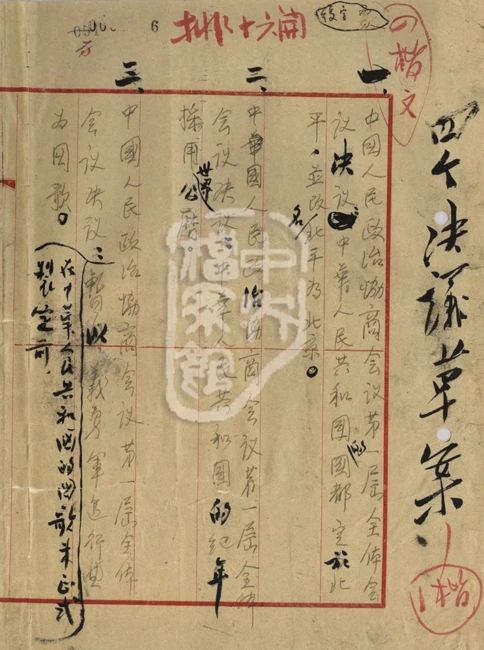 排十六開
6
④楷文
四个決議草案
1楷
一、中國人民政治协商会议第一届全体会
议決议：中华人民共和国的国都定於北
平，並改名北平为北京。
二、中國人民政治协商会议第一届全体
会议決议：中华人民共和國的纪年
採用世界公历。
三、中國人民政治协商会议第一届全体
会议決议：在中华人民共和國的國歌未正式
製定前，
暫以義勇軍進行曲
为国歌。
中央檔案館